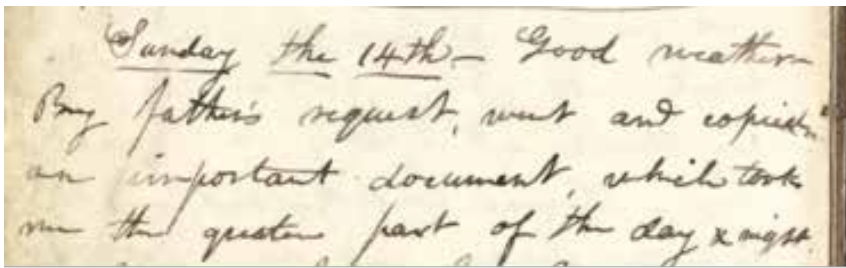 Sunday the 14th — Good weather —
By father's request, went and copied
an important document, which took
me the greater part of the day & night.